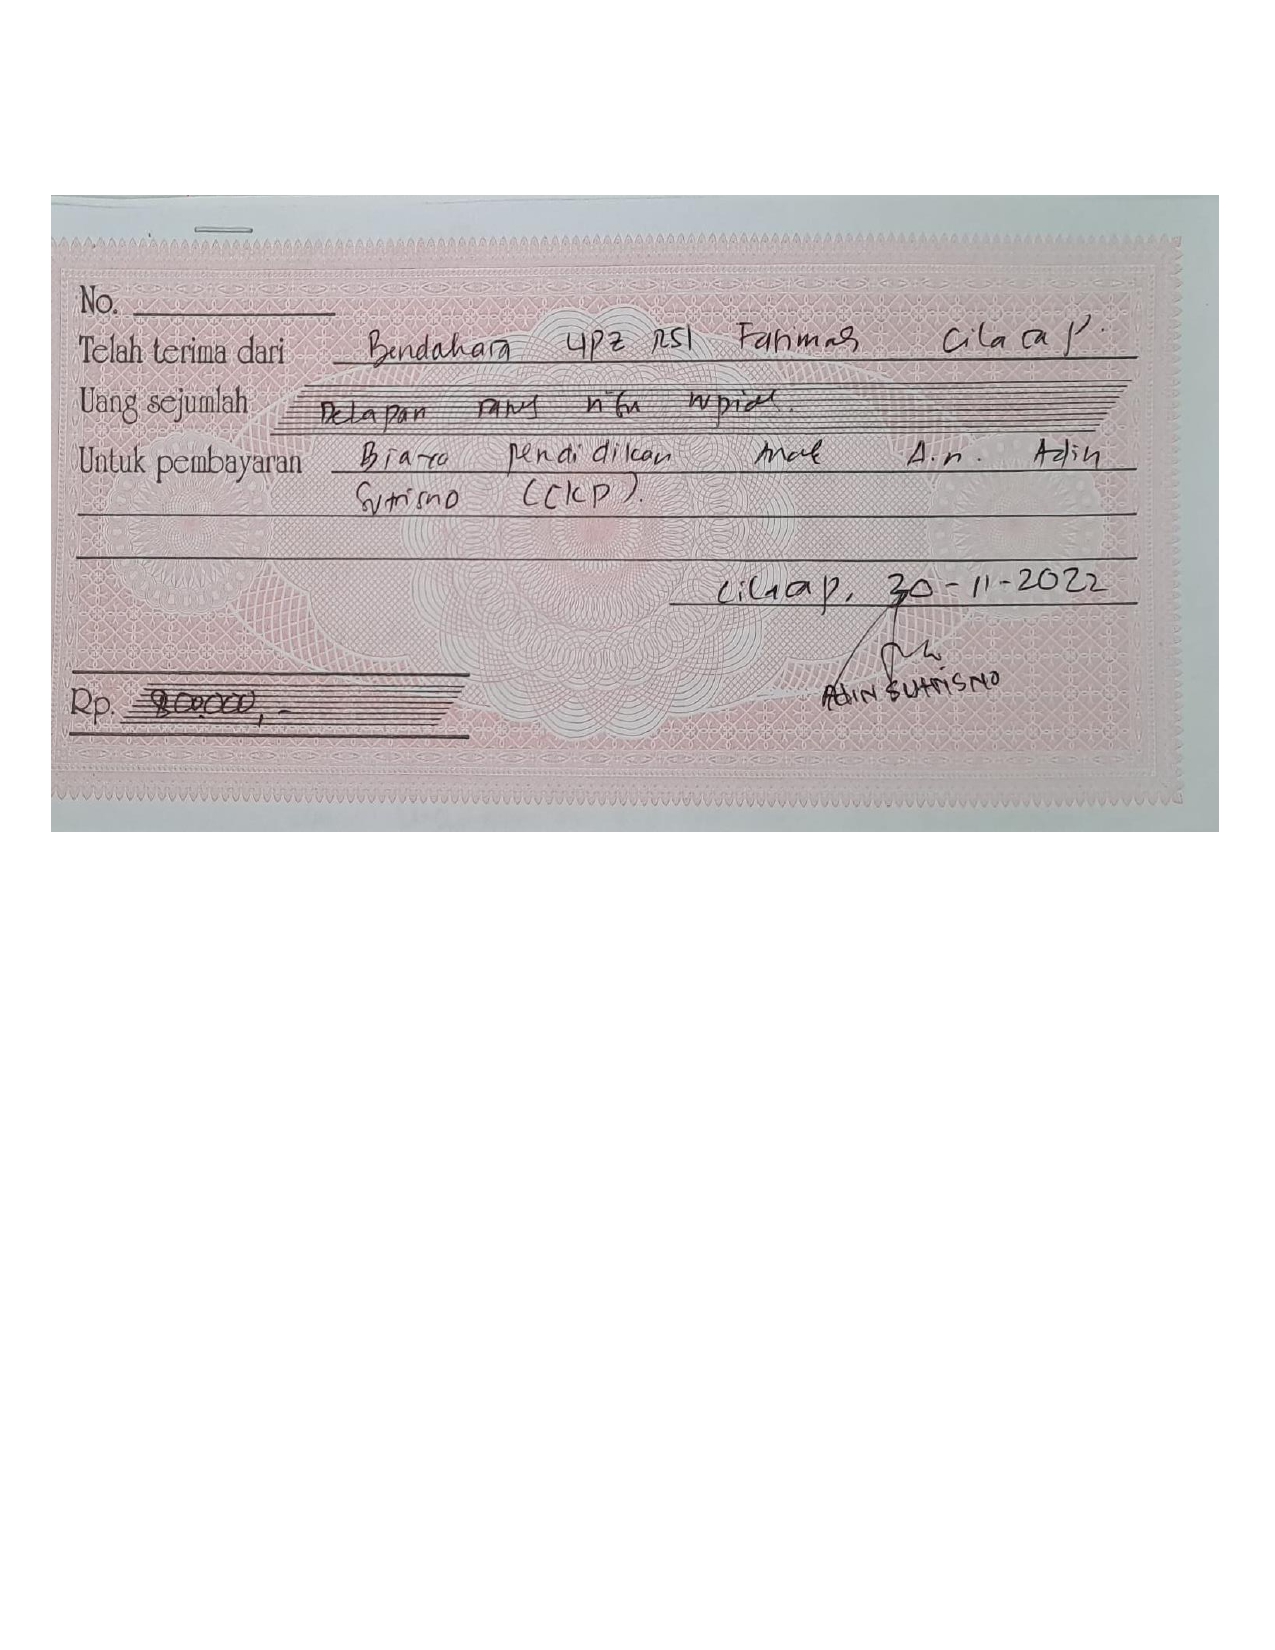 No.
Telah terima dari Bendahara UPZ RSI Fatimah Cilacap.
Uang sejumlah Delapan ratus ribu rupiah.
Untuk pembayaran Biaya pendidikan Anak A.n. Adin
Sutrisno (CKP).
Cilacap, 30-11-2022
Rp. 800.000,-
ADIN SUTRISNO